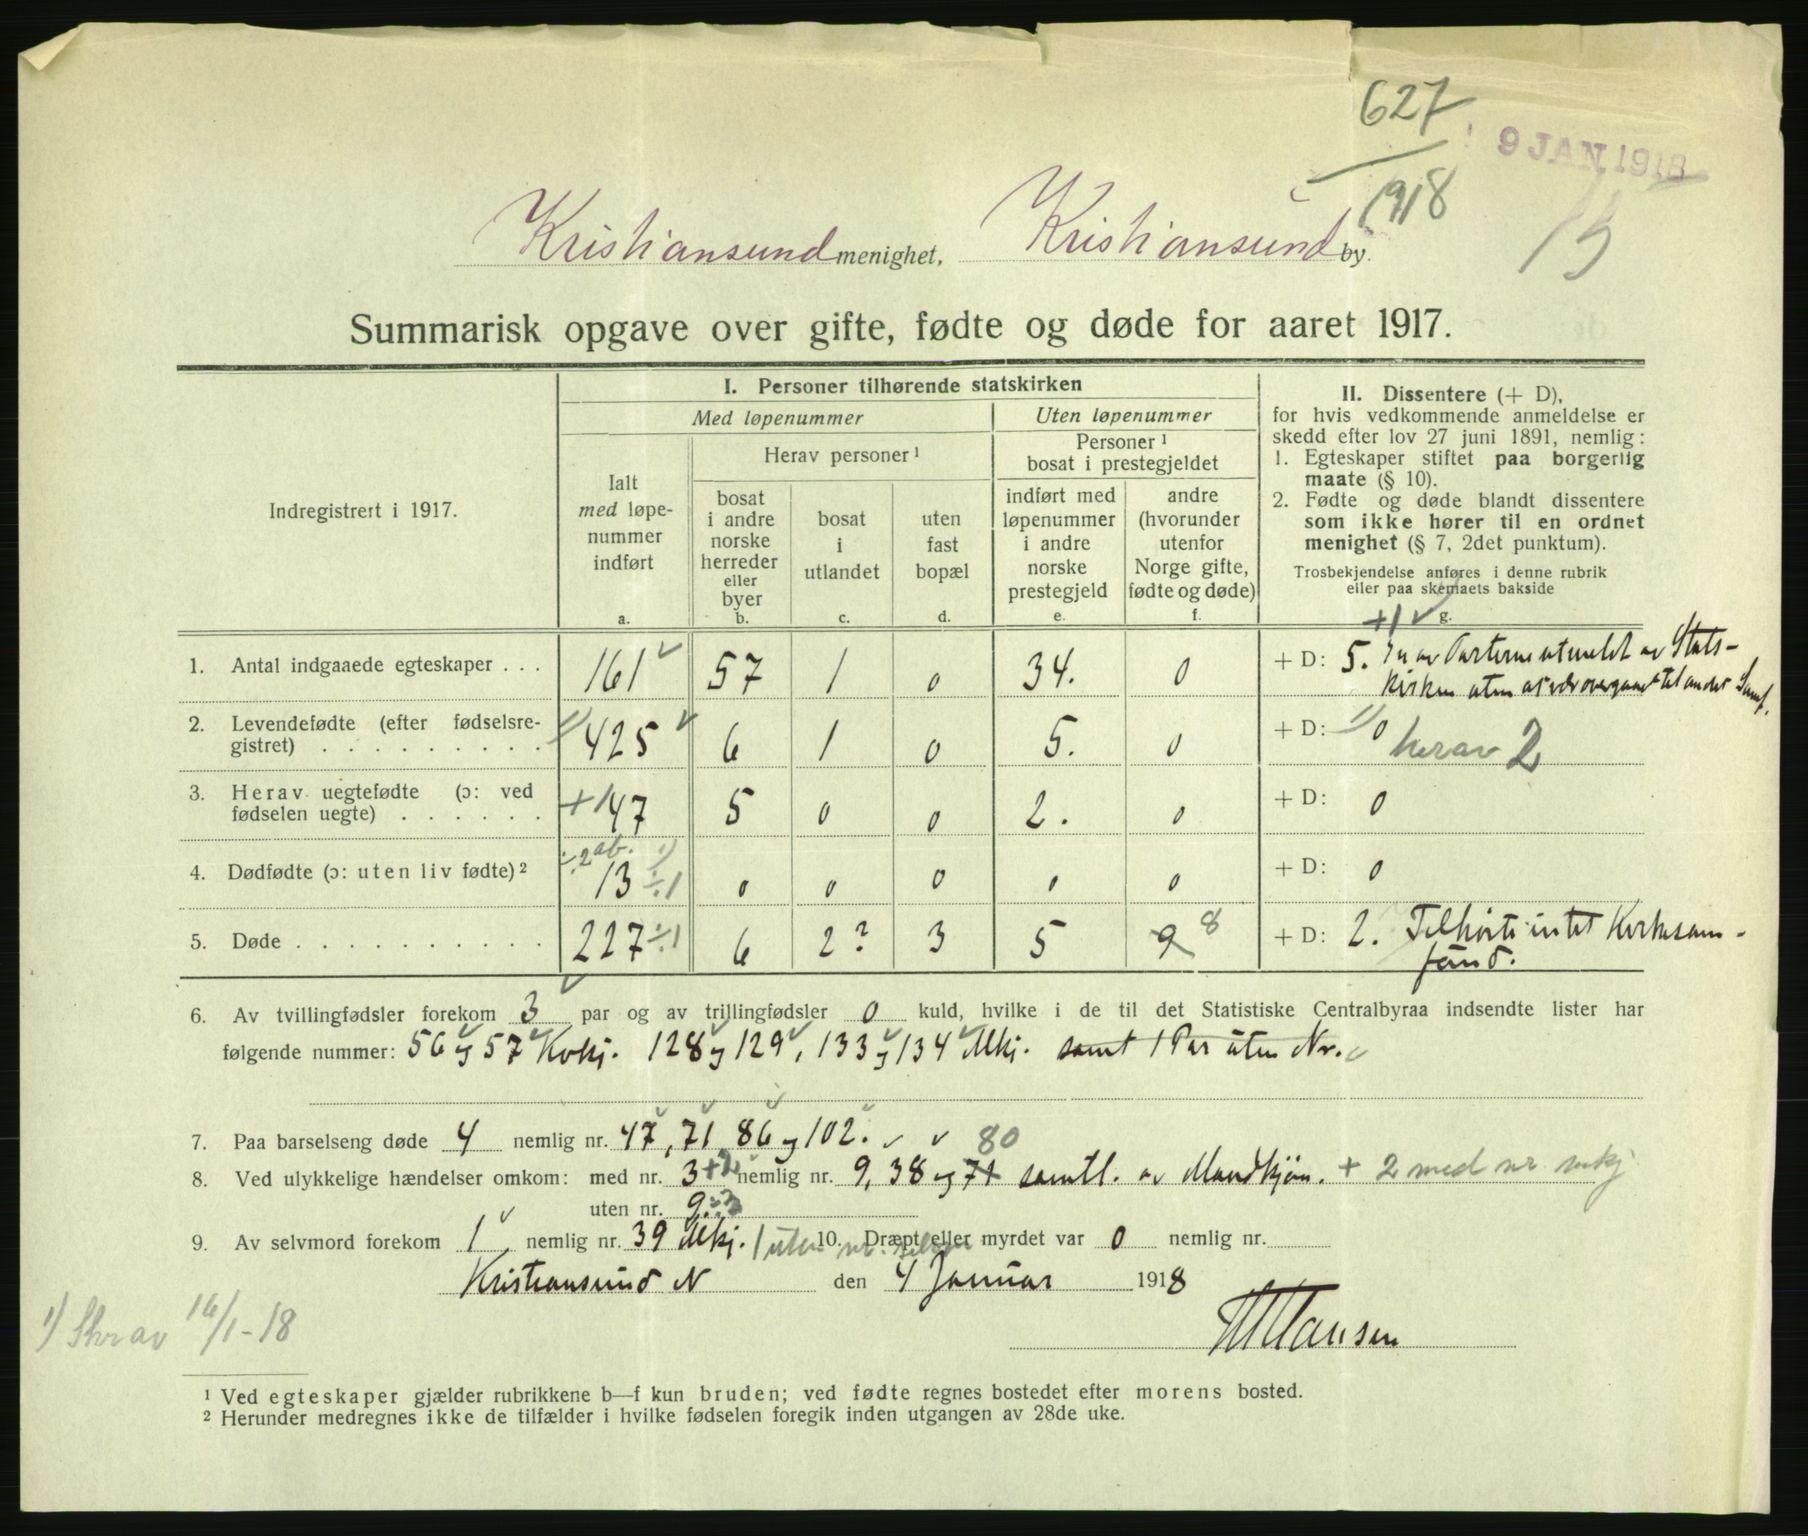 627
1918
9 JAN 1918
Kristiansund menighet, Kristiansund by.
Summarisk opgave over gifte, fødte og døde for aaret 1917.
Indregistrert i 1917.
I. Personer tilhørende statskirken
Med løpenummer
Uten løpenummer
Ialt
med løpe-
nummer
indført
a.
Herav personer ¹
bosat
i andre
norske
herreder
eller
byer
b.
bosat
i
utlandet
c.
uten
fast
bopæl
d.
Personer ¹
bosat i prestegjeldet
indført med
løpenummer
i andre
norske
prestegjeld
e.
andre
(hvorunder
utenfor
Norge gifte,
fødte og døde)
f.
II. Dissentere (+ D),
for hvis vedkommende anmeldelse er
skedd efter lov 27 juni 1891, nemlig:
1. Egteskaper stiftet paa borgerlig
maate (§ 10).
2. Fødte og døde blandt dissentere
som ikke hører til en ordnet
menighet (§ 7, 2det punktum).
Trosbekjendelse anføres i denne rubrik
eller paa skemaets bakside
g.
+1 ✓
1. Antal indgaaede egteskaper . . . 161 ✓ 57 1 0 34. 0 + D: 5. av Parterne utmeldt av Stats-
kirken uten at være overgaaet til andet Samf.
2. Levendefødte (efter fødselsre-
gistret) . . . . . . . . . 1) 425 ✓ 6 1 0 5. 0 + D: 1) 0 herav 2
3. Herav uegtefødte (ɔ: ved
fødselen uegte) . . . . . . +1 47 5 0 0 2. 0 + D: 0
÷2 ab. 1)
4. Dødfødte (ɔ: uten liv fødte) ² 13 ÷1 0 0 0 0 0 + D: 0
5. Døde . . . . . . . . . . . 227 ÷1 6 2? 3 5 9 8 + D: 2. Tilhørte intet Kirkesam-
fund.
6. Av tvillingfødsler forekom 3 ✓ par og av trillingfødsler 0 kuld, hvilke i de til det Statistiske Centralbyraa indsendte lister har
følgende nummer: 56 og 57 Kvkj. 128 og 129, 133 og 134 Mkj. samt 1 Par uten Nr. ✓
7. Paa barselseng døde 4 nemlig nr. 47, 71, 86 og 102. ✓ ✓ 80
8. Ved ulykkelige hændelser omkom: med nr. 3 +2 nemlig nr. 9, 38 og 71 samtl. av Mandkjøn. + 2 med nr mkj
uten nr. 9. ÷3
9. Av selvmord forekom 1 ✓ nemlig nr. 39 Mkj. 1 uten nr. 10. Dræpt eller myrdet var 0 nemlig nr.
Kristiansund N den 4 Januar 1918
Hansen
1) Skrav 16/1-18
¹ Ved egteskaper gjælder rubrikkene b—f kun bruden; ved fødte regnes bostedet efter morens bosted.
² Herunder medregnes ikke de tilfælder i hvilke fødselen foregik inden utgangen av 28de uke.